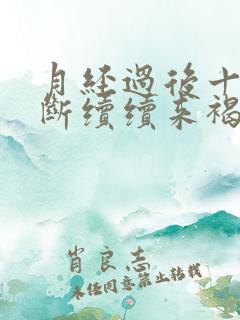 月經過後十
斷續續来褐
肖良志
未经同意禁止转载